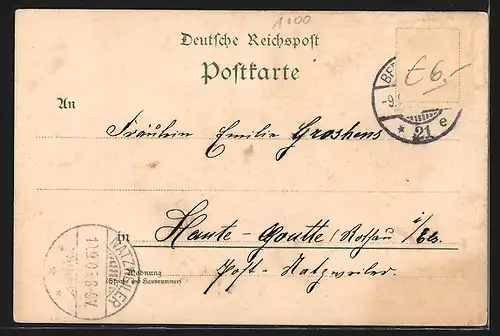 1000
Deutsche Reichspost
Postkarte
£6.-
BER
-9.
21 e
An
Fräulein Emilie Groshens
in Haute-Goutte (Rothau i/Els.
Post-Natzweiler.
Wohnung
(Straße und Hausnummer)
NATZWEILER